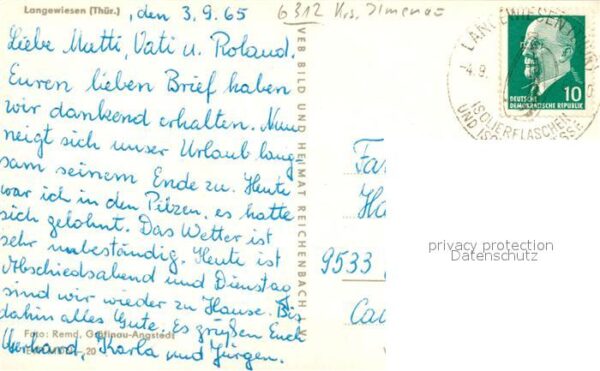 Langewiesen (Thür.)
, den 3.9.65
6312 Krs. Ilmenau
Liebe Mutti, Vati u. Roland.
Euren lieben Brief haben
wir dankend erhalten. Nun
neigt sich unser Urlaub lang-
sam seinem Ende zu. Heute
war ich in den Pilzen, es hatte
sich gelohnt. Das Wetter ist
sehr unbeständig. Heute ist
Abschiedsabend und Dienstag
sind wir wieder zu Hause. Bis
dahin alles Gute. Es grüßen Euch
Gerhard, Karla und Jürgen.
Foto: Remd, Gräfinau-Angstedt
20
VEB BILD UND HEIMAT REICHENBACH I. V.
LANGEWIESEN
-4.9.
ISOLIERFLASCHEN
UND
10
DEUTSCHE
DEMOKRATISCHE REPUBLIK
Fa
Ha
9533
Ca
privacy protection
Datenschutz